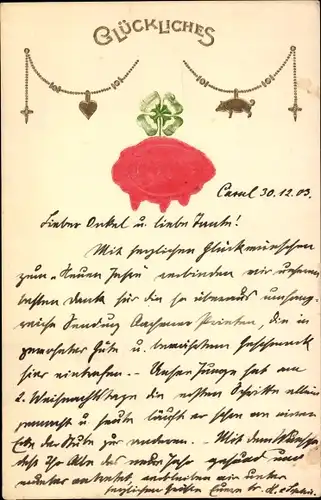 GLÜCKLICHES
Cassel 30.12.03.
Lieber Onkel u. liebe Tante!
Mit herzlichen Glückwünschen
zum "Neuen Jahr" verbinden wir unseren
besten Dank für die so überaus umfang-
reiche Sendung Aachener Printen, die in
gewohnter Güte u. bewährtem Geschmack
hier eintrafen. — Unser Junge hat am
2. Weihnachtstage die ersten Schritte allein
gemacht u. heute läuft er schon von einer
Ecke der Stube zur anderen. — Mit dem Wunsche
daß Ihr Alle das neue Jahr gesund und
munter antretet, verbleiben wir unter
herzlichen Grüßen Euer